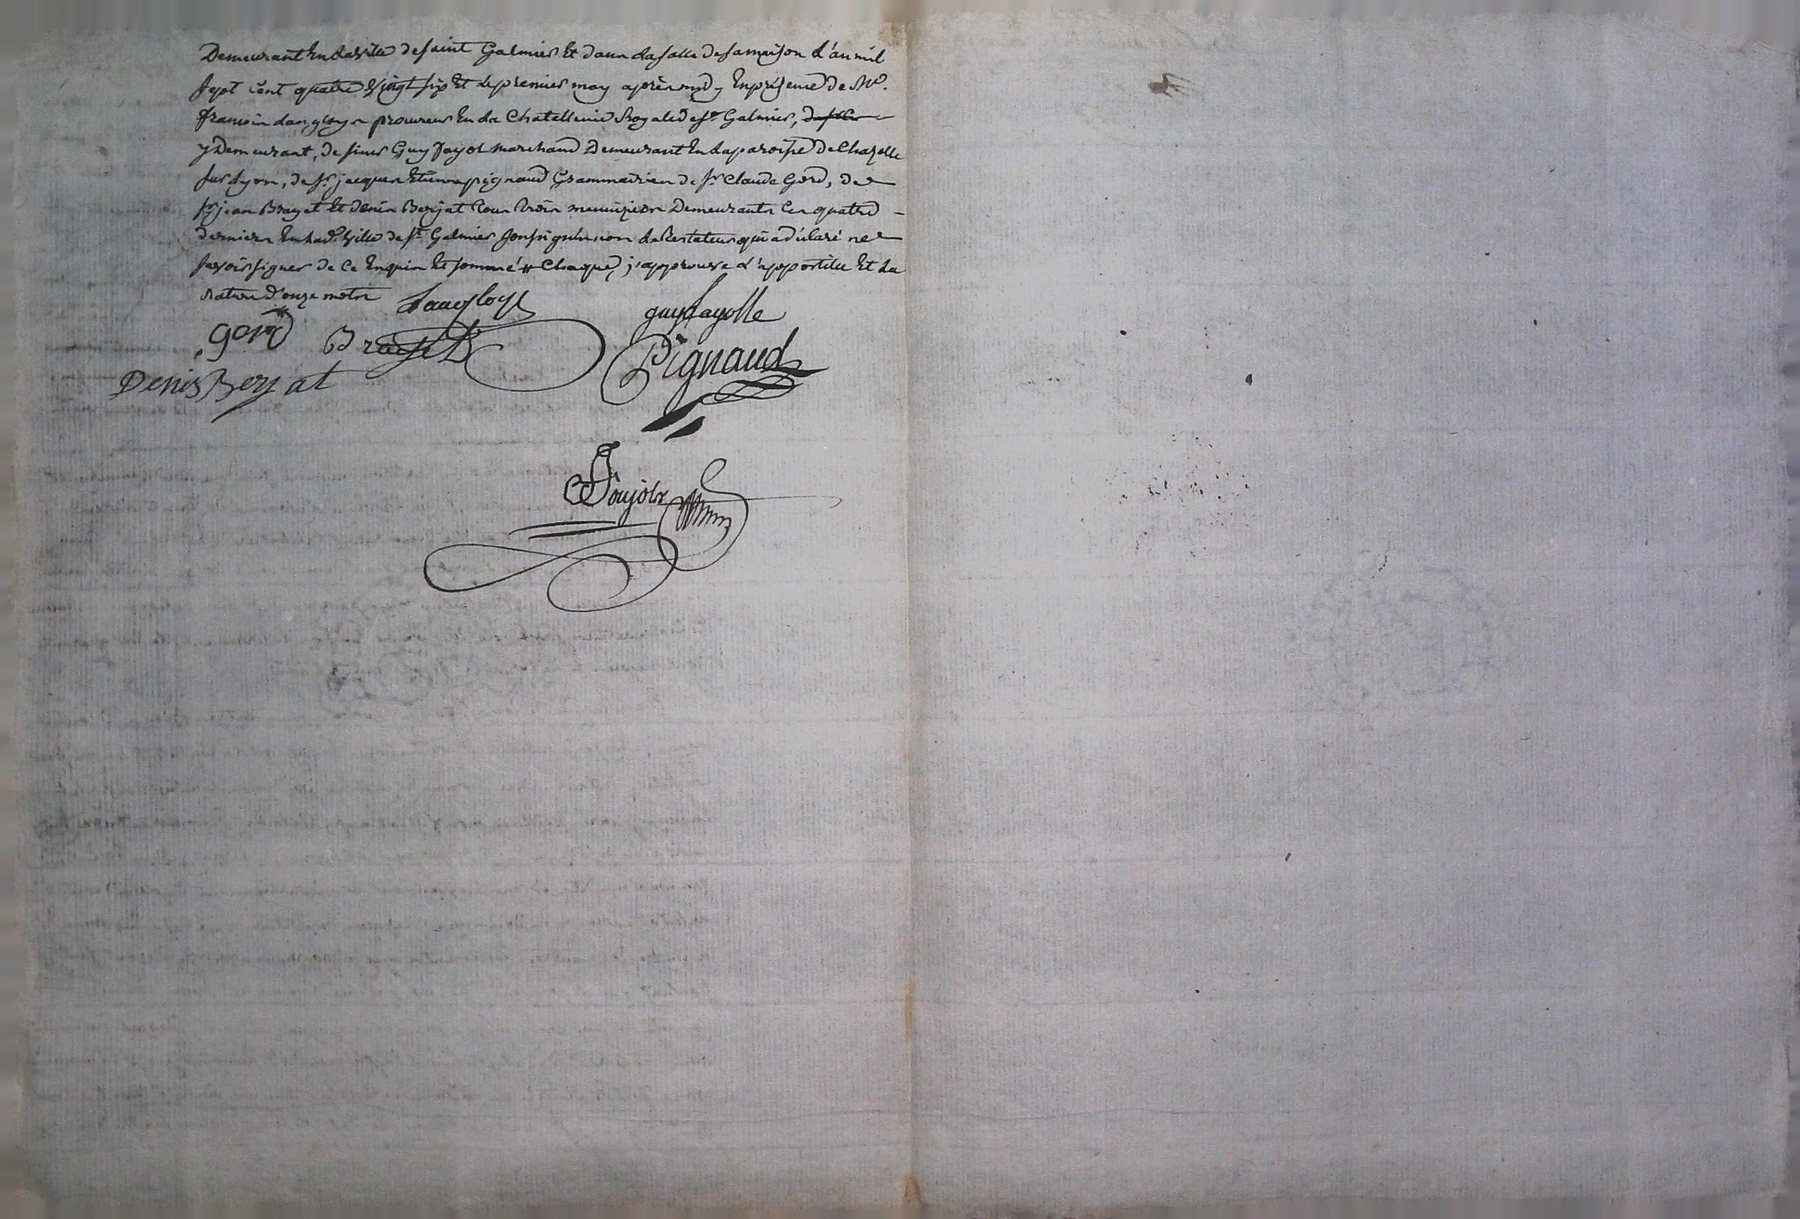 Demeurant En la ville de saint Galmier Et dans la salle de sa maison l'an mil
sept cent quatre vingt six Et le premier may après midy En présence de Me.
francois Langlois procureur En la Chatellenie Royale de st Galmier,
y Demeurant, de sieur Guy fayol marchand Demeurant En la paroisse de Chazelle
sur Lyon, de sr. jacques Etienne pignaud Grammairien de sr Claude Gord, de
sr jean Bruyet Et denis Berjat tous trois menuisiers Demeurants Ces quatre
derniers En lad. ville de st Galmier soussignés non le testateur qui a déclaré ne
savoir signer de Ce Enquis Et sommé # Chaque, j'approuve l'appostille Et la
rature d'onze mots
Langlois
guy fayolle
gord
Bruyet
Pignaud
Denis Berjat